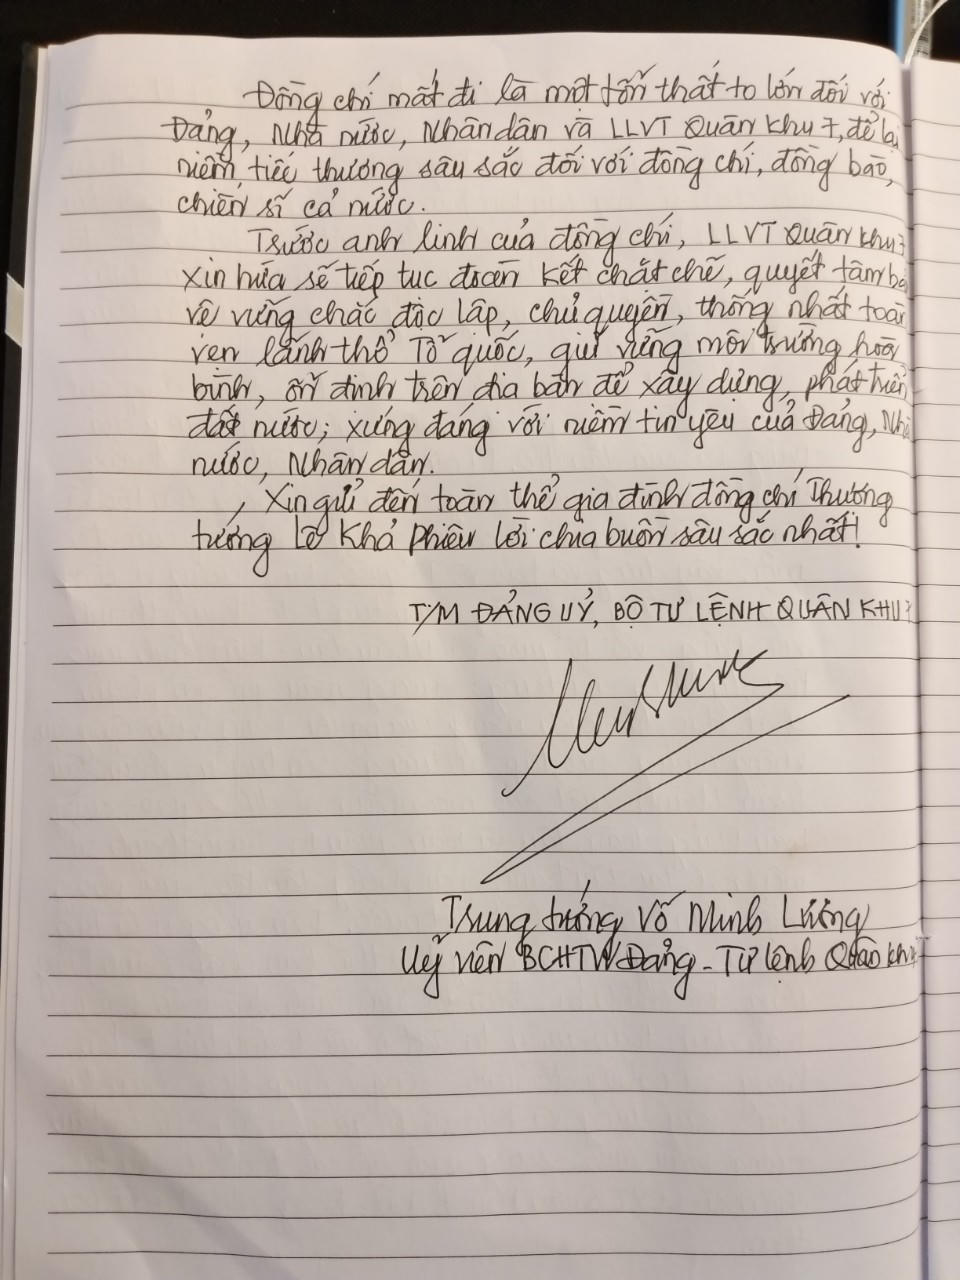 Đồng chí mất đi là một tổn thất to lớn đối với
Đảng, Nhà nước, Nhân dân và LLVT Quân khu 7, để lại
niềm tiếc thương sâu sắc đối với đồng chí, đồng bào,
chiến sĩ cả nước.
Trước anh linh của đồng chí, LLVT Quân khu 7
xin hứa sẽ tiếp tục đoàn kết chặt chẽ, quyết tâm bảo
vệ vững chắc độc lập, chủ quyền, thống nhất toàn
vẹn lãnh thổ Tổ quốc, giữ vững môi trường hòa
bình, ổn định trên địa bàn để xây dựng, phát triển
đất nước; xứng đáng với niềm tin yêu của Đảng, Nhà
nước, Nhân dân.
Xin gửi đến toàn thể gia đình đồng chí Thượng
tướng Lê Khả Phiêu lời chia buồn sâu sắc nhất!
T/M ĐẢNG UỶ, BỘ TƯ LỆNH QUÂN KHU 7
Trung tướng Võ Minh Lương
Uỷ viên BCHTW Đảng - Tư lệnh Quân khu 7